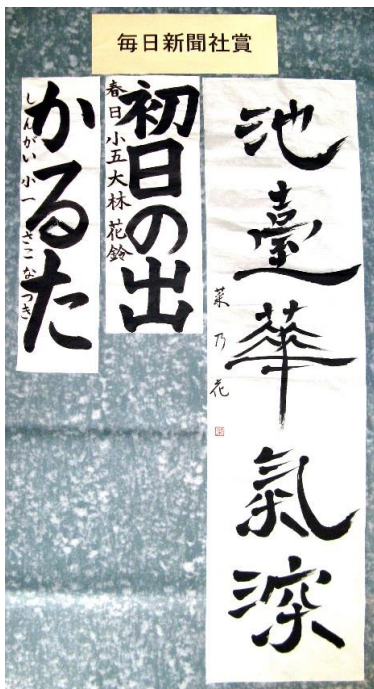 毎日新聞社賞
池臺華氣深
菜乃花
初日の出
春日小五 大林花鈴
かるた
しんがい小一 さこなつき